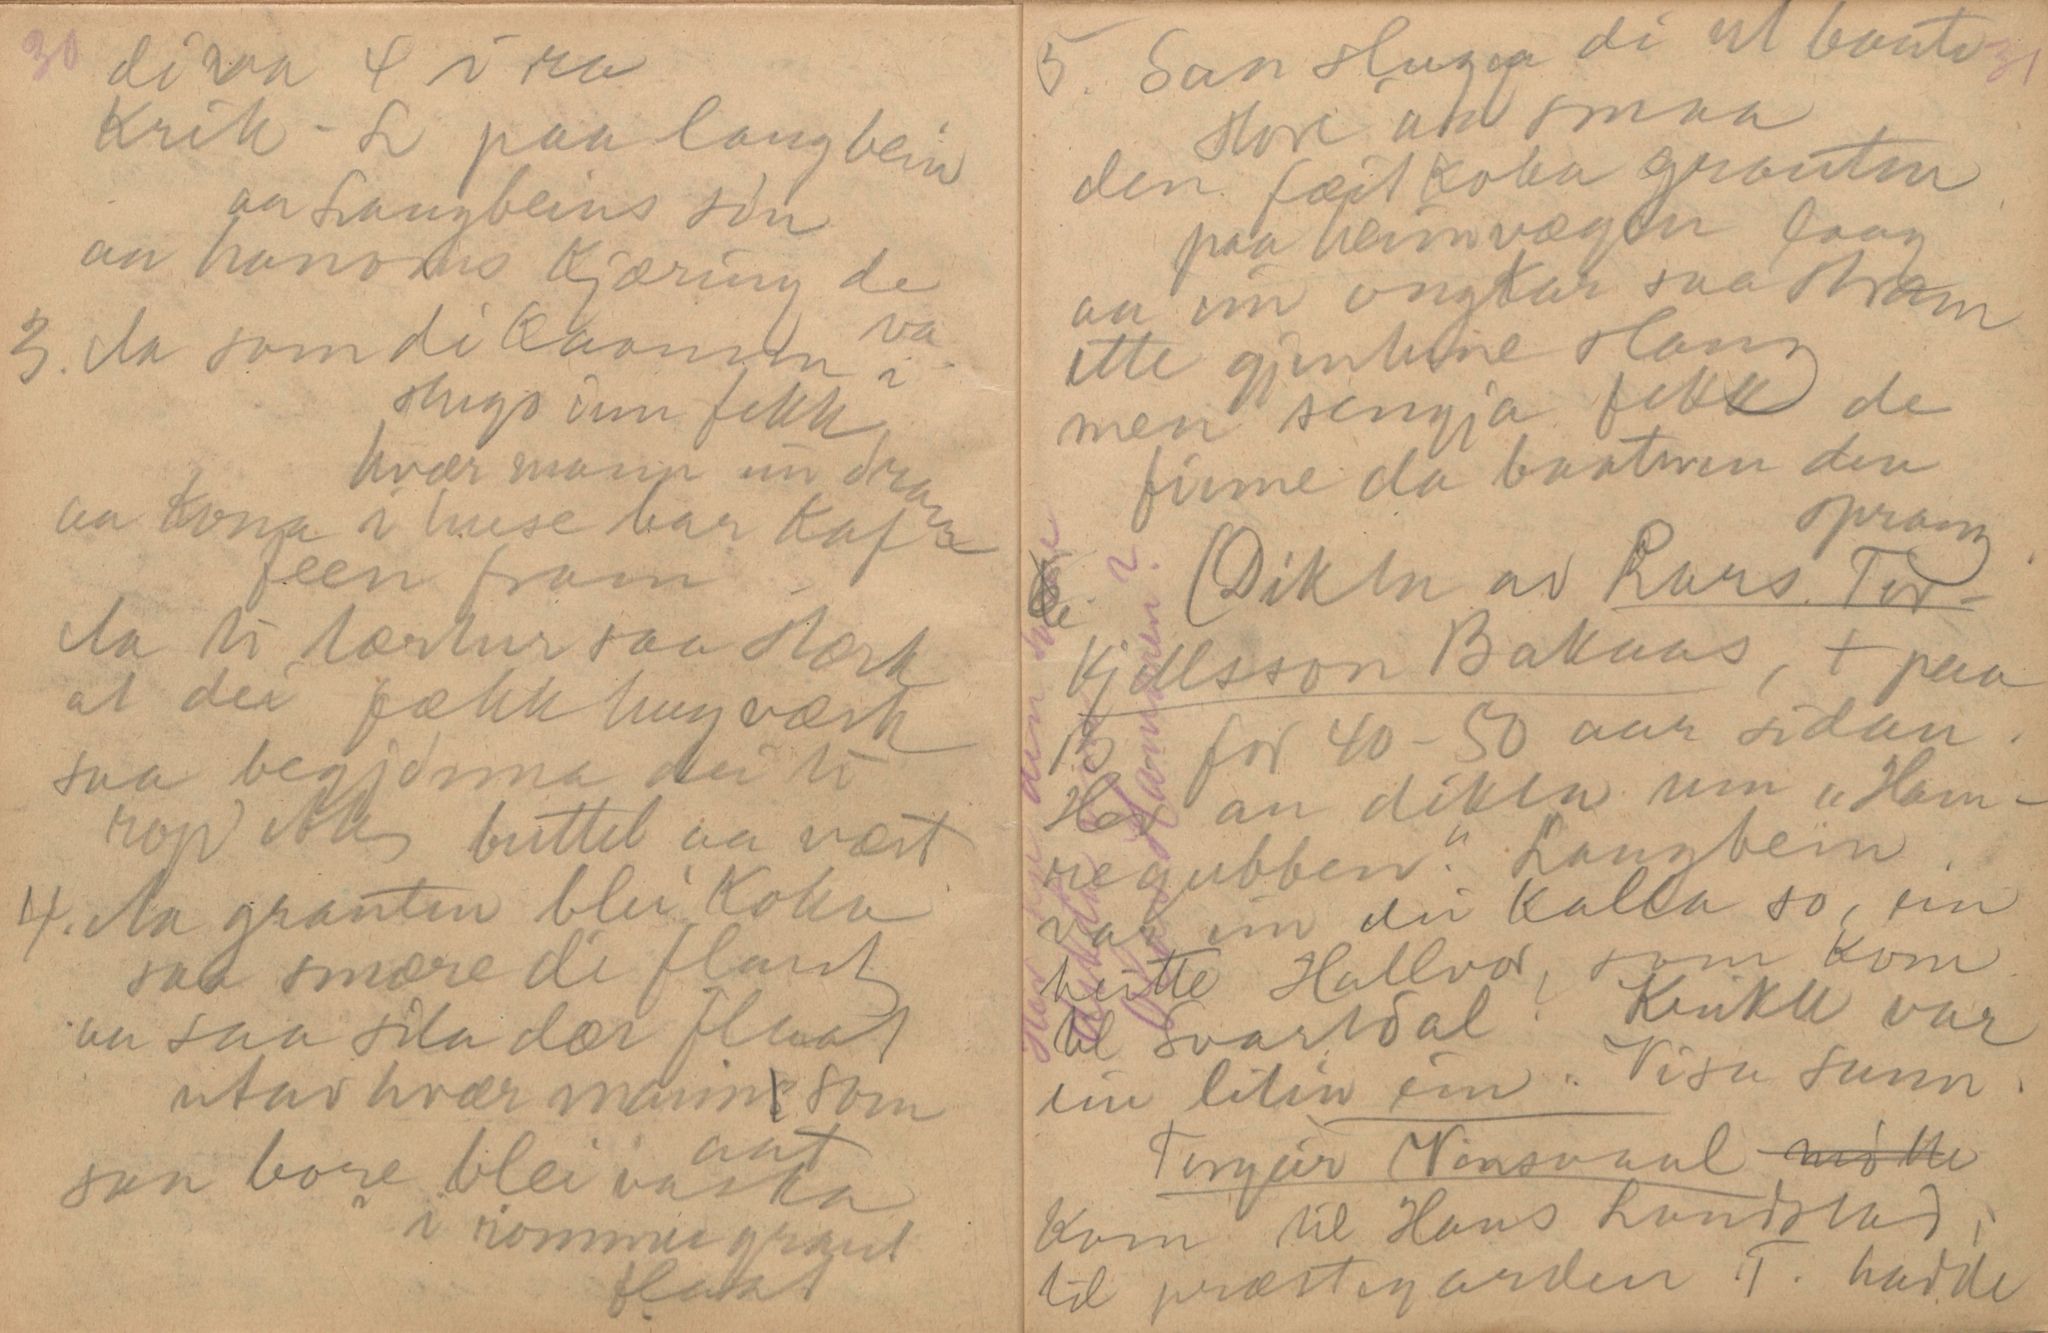 30
di va 4 i ra
Krik - L paa langbein
aa Langbeins sön
aa hanoms Kjæring de
va
3. Aa som di kaamm i
stugo inn fekk
hvær mann ein dram
aa Kona i huse bar Kaf=
feen fram
Aa ti tærhur saa stærk
at dei fækk hugværk
saa begjönna dei ti
rop buttel aa vært
4. Aa grauten blei Koka
saa smære di flaut
aa saa sila dær flaat
utav hvær mann som
aat
san bore blei vaska
i rommegraut
flaat
31
5. San stugga di ut baate
store aa smaa
den fæit koka grauten
paa heimvægen laag
aa ein ungkar saa stræm
ette gjentune slang
men sengja fekk de
finne da baatnen den
sprang
(Dikta av Lars Tor-
Kjellsson Bakaas, + paa
15 for 40-50 aar sidan.
Han dikta um "Ham-
regubben". Langbein
var ein dei Kalla so, ein
heitte Hallvor, som kom
til Svartdal. Krikk var
ein liten ein. Visa sann.
Torgeir Vinsvaal møtte
Kom til Hans Landstad,
til præstegarden T. hadde